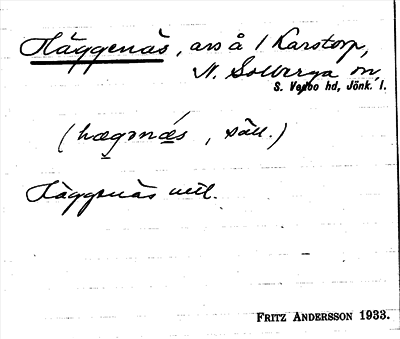 Häggenäs, avs å 1 Karstorp,
N. Solberga sn,
S. Vedbo hd, Jönk. l.
(hægənä́s, säll.)
Häggenäs utt.
FRITZ ANDERSSON 1933.